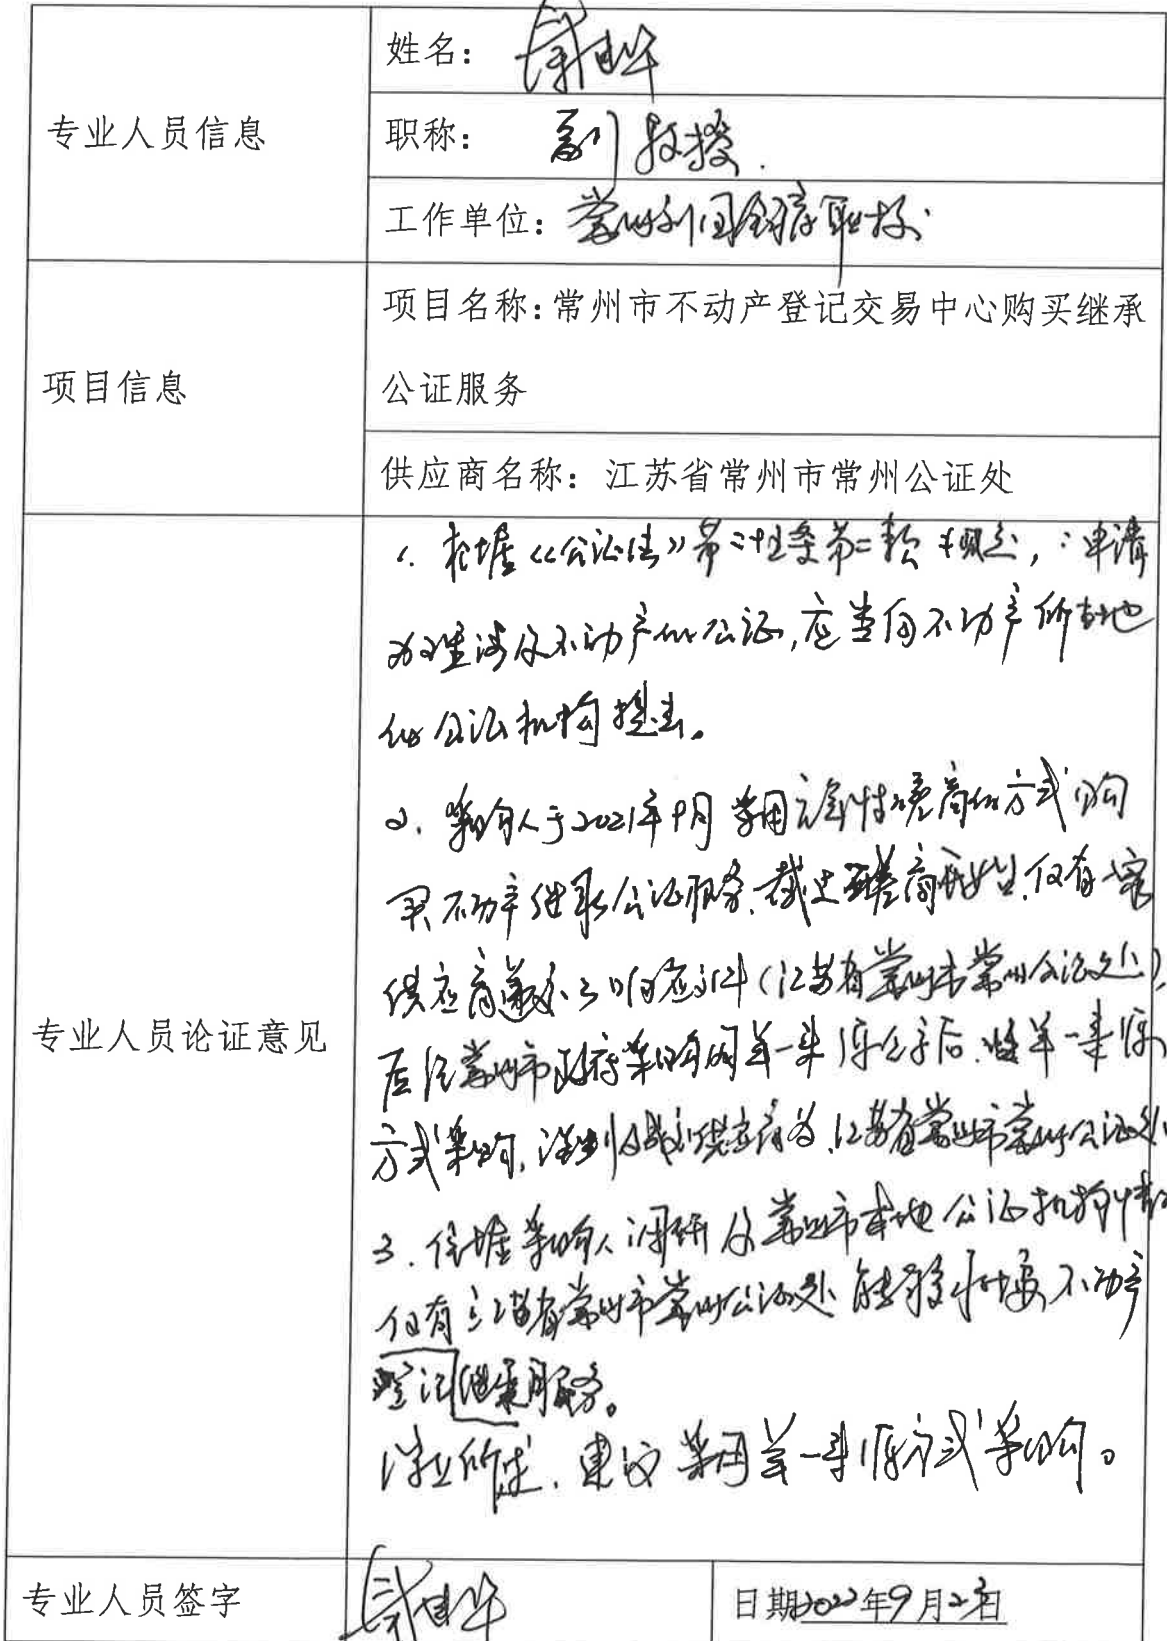 姓名：
专业人员信息
职称： 副教授.
工作单位：常州刘国钧高职校
项目名称：常州市不动产登记交易中心购买继承
项目信息
公证服务
供应商名称：江苏省常州市常州公证处
1. 根据《公证法》第二十五条第二款规定，：申请
办理涉及不动产的公证，应当向不动产所在地
的公证机构提出。
2. 采购人于2021年9月采用竞争性磋商的方式购
买不动产继承公证服务，截止至磋商开始，仅有一家
供应商递交了响应文件（江苏省常州市常州公证处），
后经常州市政府采购网单一来源公示后，以单一来源
方式采购，成交供应商为江苏省常州市常州公证处
3. 根据采购人调研及常州市本地公证机构情况
仅有江苏省常州市常州公证处能够承接不动产
登记继承服务。
专业人员论证意见
综上所述，建议采用单一来源方式采购。
专业人员签字
日期2022年9月23日